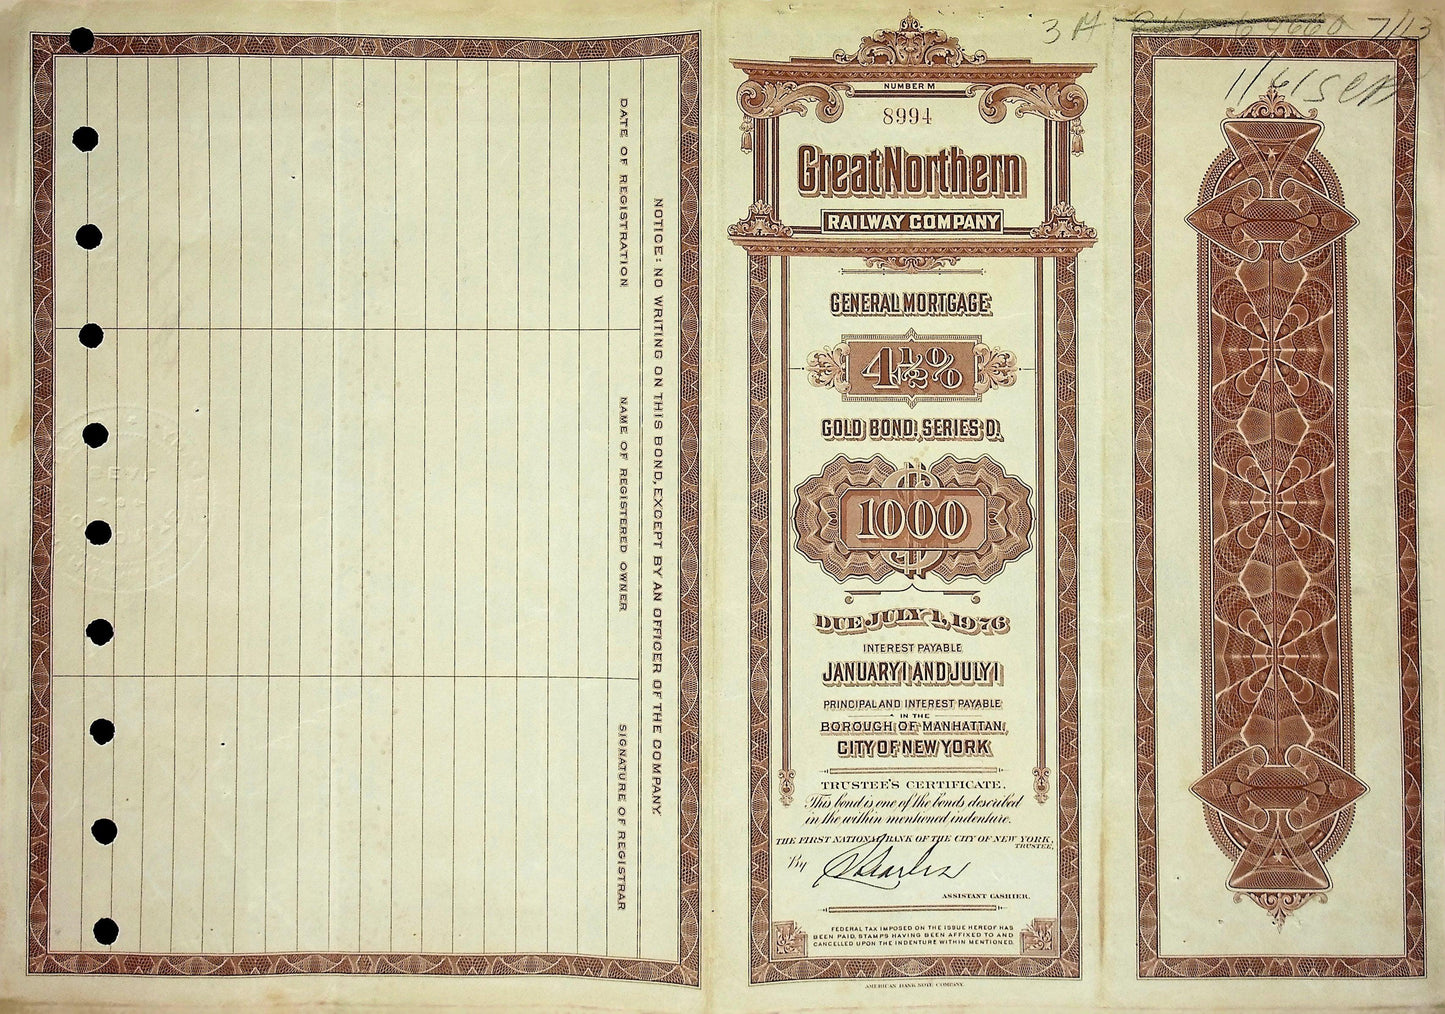 3 M
69660 7/13
DATE OF REGISTRATION
NAME OF REGISTERED OWNER
SIGNATURE OF REGISTRAR
NOTICE: NO WRITING ON THIS BOND, EXCEPT BY AN OFFICER OF THE COMPANY.
NUMBER M
8994
Great Northern
RAILWAY COMPANY
GENERAL MORTGAGE
4½%
GOLD BOND, SERIES D.
$1000
DUE JULY 1, 1976
INTEREST PAYABLE
JANUARY 1 AND JULY 1
PRINCIPAL AND INTEREST PAYABLE
IN THE
BOROUGH OF MANHATTAN,
CITY OF NEW YORK
TRUSTEE'S CERTIFICATE.
This bond is one of the bonds described
in the within mentioned indenture.
THE FIRST NATIONAL BANK OF THE CITY OF NEW YORK,
TRUSTEE,
By
ASSISTANT CASHIER.
FEDERAL TAX IMPOSED ON THE ISSUE HEREOF HAS
BEEN PAID, STAMPS HAVING BEEN AFFIXED TO AND
CANCELLED UPON THE INDENTURE WITHIN MENTIONED.
AMERICAN BANK NOTE COMPANY.